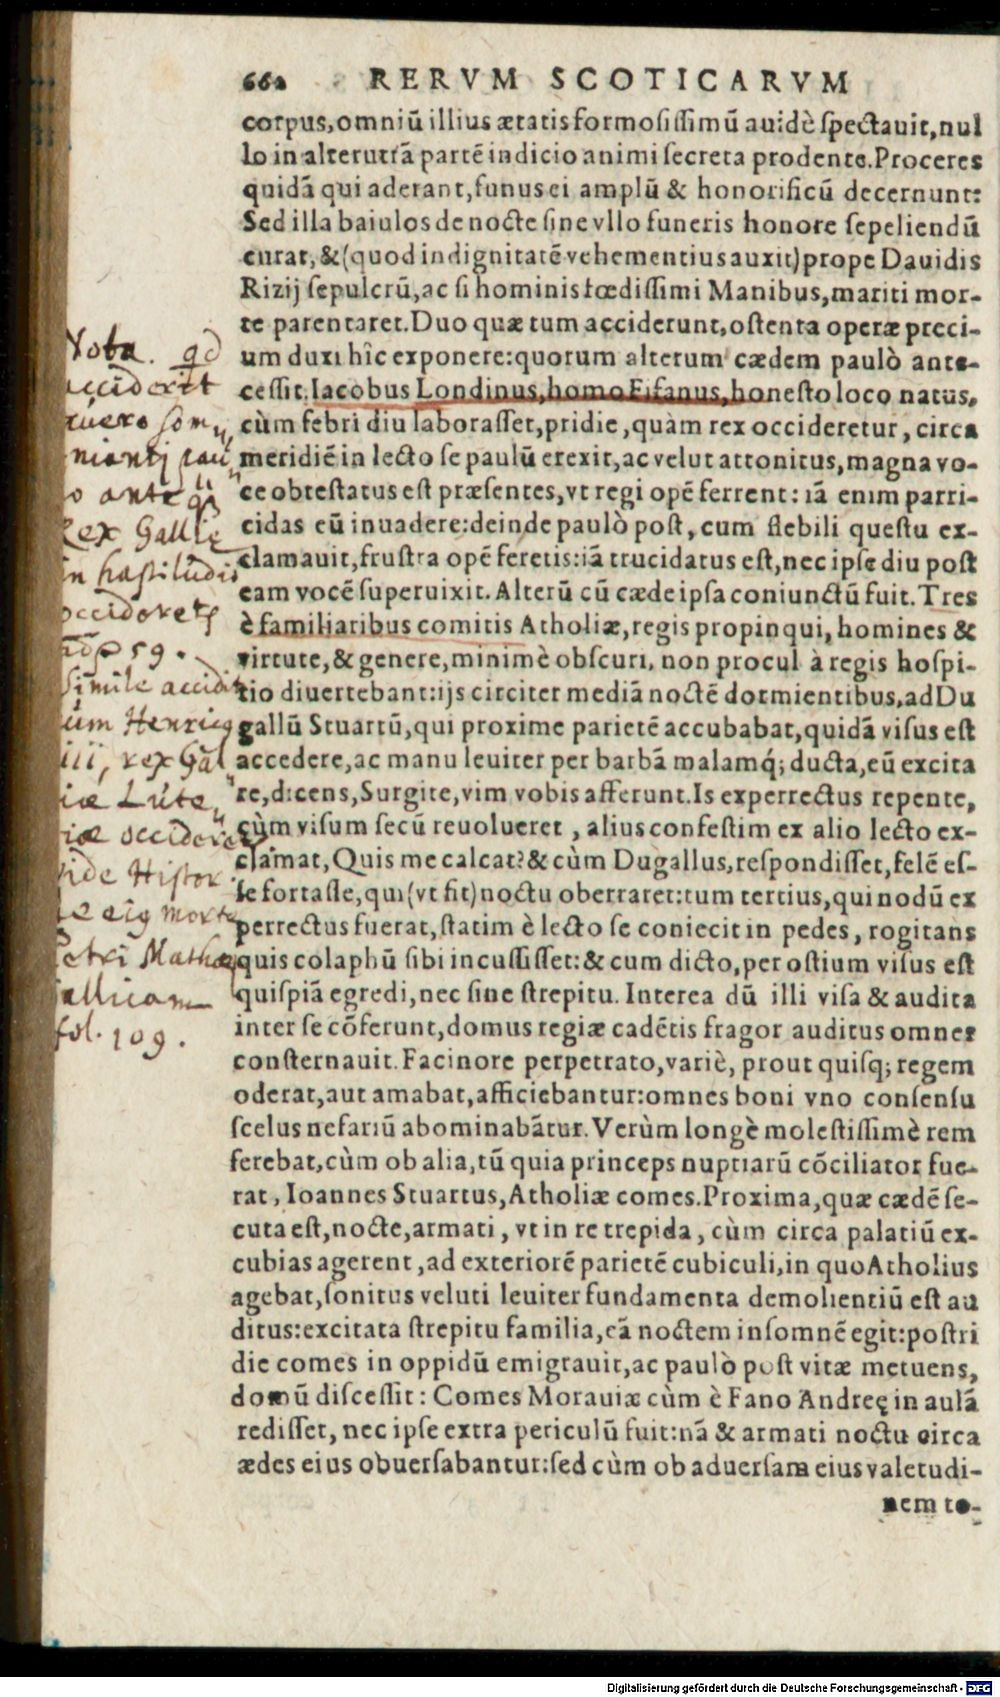 662 RERVM SCOTICARVM
corpus,omniũ illius ætatis formosissimũ auidè spectauit,nul
lo in alterutrã partẽ indicio animi secreta prodente.Proceres
quidã qui aderant,funus ei amplũ & honorificũ decernunt:
Sed illa baiulos de nocte sine vllo funeris honore sepeliendũ
curat,&(quod indignitatẽ vehementius auxit)prope Dauidis
Rizij sepulcrũ,ac si hominis fœdissimi Manibus,mariti mor-
te parentaret.Duo quæ tum acciderunt,ostenta operæ preci-
um duxi hîc exponere:quorum alterum cædem paulò ante-
cessit.Iacobus Londinus,homo Fifanus,honesto loco natus,
cùm febri diu laborasset,pridie,quàm rex occideretur, circa
meridiẽ in lecto se paulũ erexit,ac velut attonitus,magna vo-
ce obtestatus est præsentes,vt regi opẽ ferrent: iã enim parri-
cidas eũ inuadere:deinde paulò post, cum flebili questu ex-
clamauit,frustra opẽ feretis:iã trucidatus est,nec ipse diu post
eam vocẽ superuixit. Alterũ cũ cæde ipsa coniunctũ fuit. Tres
è familiaribus comitis Atholiæ,regis propinqui, homines &
virtute,& genere,minimè obscuri, non procul à regis hospi-
tio diuertebant:ijs circiter mediã noctẽ dormientibus,ad Du
gallũ Stuartũ,qui proxime parietẽ accubabat,quidã visus est
accedere,ac manu leuiter per barbã malamq́; ducta,eũ excita
re,dicens,Surgite,vim vobis afferunt.Is experrectus repente,
cùm visum secũ reuolueret , alius confestim ex alio lecto ex-
clamat,Quis me calcat?& cùm Dugallus,respondisset,felẽ es-
se fortasse,qui(vt fit)noctu oberraret:tum tertius,qui nodũ ex
perrectus fuerat,statim è lecto se coniecit in pedes, rogitans
quis colaphũ sibi incussisset:& cum dicto,per ostium visus est
quispiã egredi,nec sine strepitu. Interea dũ illi visa & audita
inter se cõferunt,domus regiæ cadẽtis fragor auditus omnes
consternauit. Facinore perpetrato,variè, prout quisq; regem
oderat,aut amabat,afficiebantur:omnes boni vno consensu
scelus nefariũ abominabãtur. Verùm longè molestissimè rem
ferebat,cùm ob alia,tũ quia princeps nuptiarũ cõciliator fue-
rat, Ioannes Stuartus,Atholiæ comes.Proxima,quæ cædẽ se-
cuta est,nocte,armati , vt in re trepida , cùm circa palatiũ ex-
cubias agerent ,ad exteriorẽ parietẽ cubiculi,in quo Atholius
agebat,sonitus veluti leuiter fundamenta demolientiũ est au
ditus:excitata strepitu familia,eã noctem insomnẽ egit:postri
die comes in oppidũ emigrauit,ac paulò post vitæ metuens,
domũ discessit: Comes Morauiæ cùm è Fano Andreę in aulã
redisset, nec ipse extra periculũ fuit:nã & armati noctu circa
ædes eius obuersabantur:sed cùm ob aduersam eius valetudi-
nem to-
Nota. qd
acciderit
somn
niantj pau
lo ante qͣ
Rex Gallię
in hastiludis
occideretʳ
59.
Simile accidit
cum Henricꝰ
iii, rex Gal
iæ Lute
iæ occideret
vide Histor
de eiꝰ morte
Petri Mathæj
Gallicam
fol. 109.
Digitalisierung gefördert durch die Deutsche Forschungsgemeinschaft - DFG